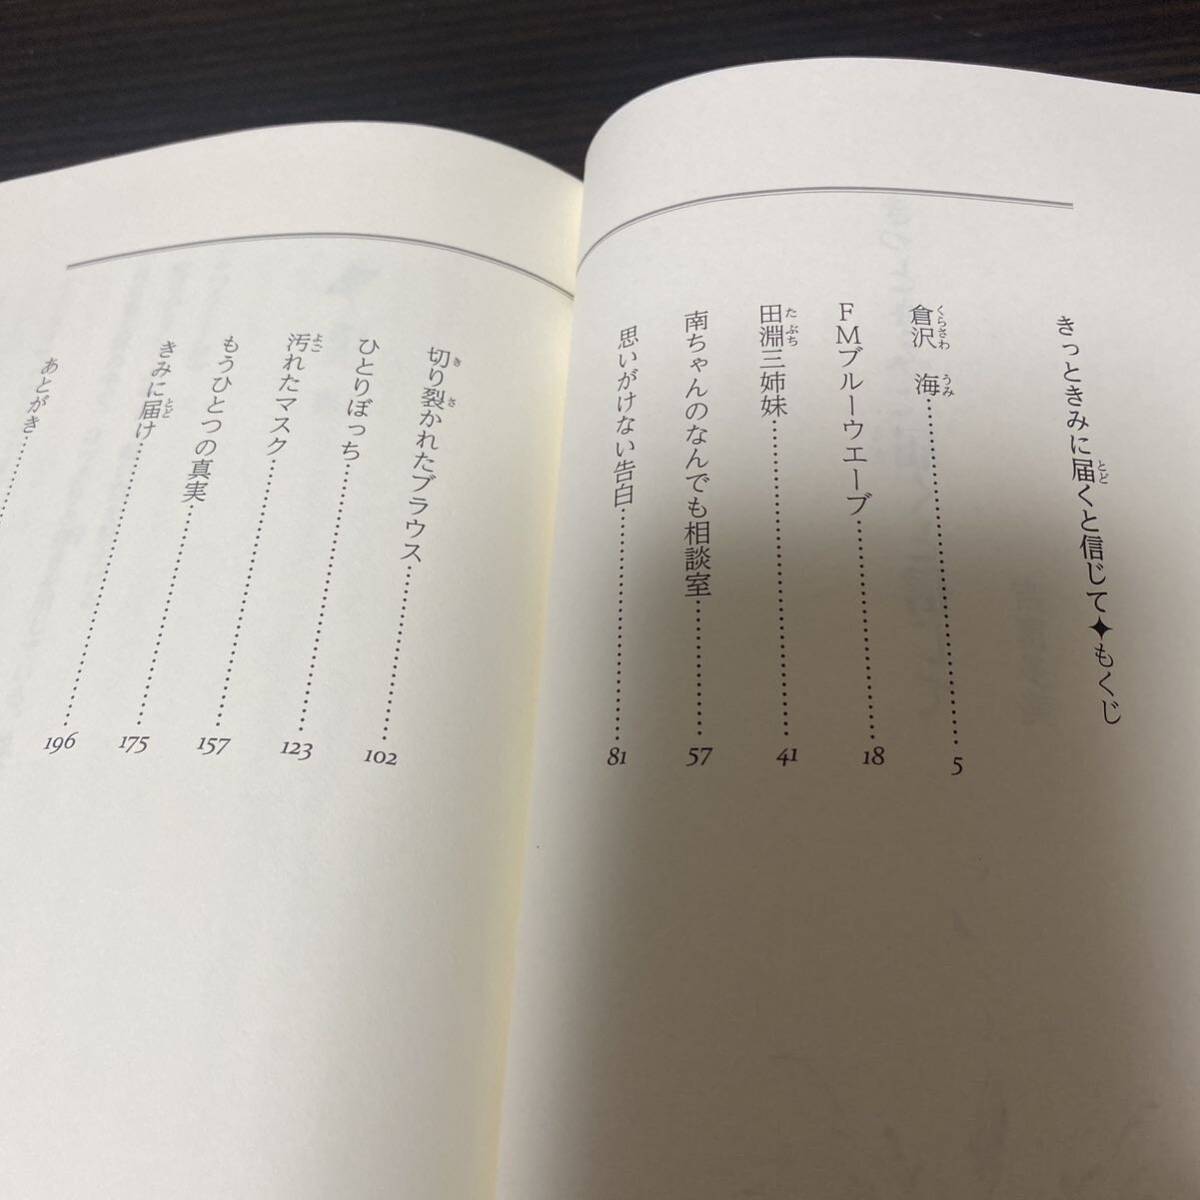 きっときみに届くと信じて✦もくじ
倉沢　海……………………5
FMブルーウエーブ……………………18
田淵三姉妹……………………41
南ちゃんのなんでも相談室……………………57
思いがけない告白……………………81
切り裂かれたブラウス……………………102
ひとりぼっち……………………123
汚れたマスク……………………157
もうひとつの真実……………………175
きみに届け……………………196
あとがき……………………